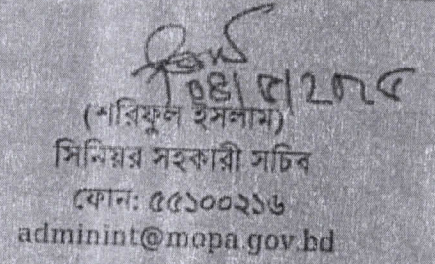 (শরিফুল ইসলাম)
সিনিয়র সহকারী সচিব
ফোন: ৫৫১০০২১৬
adminint@mopa.gov.bd